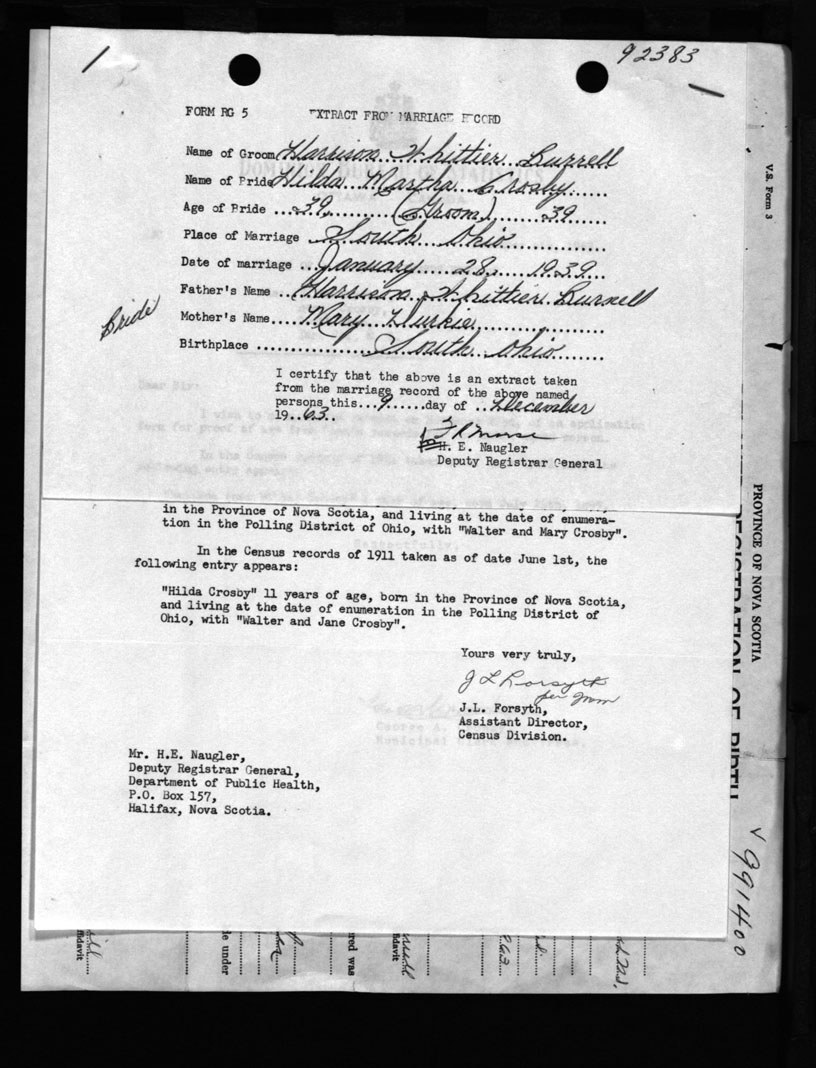 1
92383
FORM RG 5 EXTRACT FROM MARRIAGE RECORD
Name of Groom Harrison Whittier Burrell
Name of Bride Hilda Martha Crosby
Age of Bride ..39..........(Groom).......39
Place of Marriage South Ohio
Date of marriage ...January 28, 1939...
Father's Name ...Harrison Whittier Burrell
Bride
Mother's Name....Mary Durkie
Birthplace ................South Ohio
I certify that the above is an extract taken
from the marriage record of the above named
persons this...9......day of ..December
19..63..
H. E. Naugler
Deputy Registrar General
in the Province of Nova Scotia, and living at the date of enumera-
tion in the Polling District of Ohio, with "Walter and Mary Crosby".
In the Census records of 1911 taken as of date June 1st, the
following entry appears:
"Hilda Crosby" 11 years of age, born in the Province of Nova Scotia,
and living at the date of enumeration in the Polling District of
Ohio, with "Walter and Jane Crosby".
Yours very truly,
J L Forsyth
J.L. Forsyth,
Assistant Director,
Census Division.
Mr. H.E. Naugler,
Deputy Registrar General,
Department of Public Health,
P.O. Box 157,
Halifax, Nova Scotia.
V.S. Form 3
PROVINCE OF NOVA SCOTIA
REGISTRATION OF BIRTH
V 991400